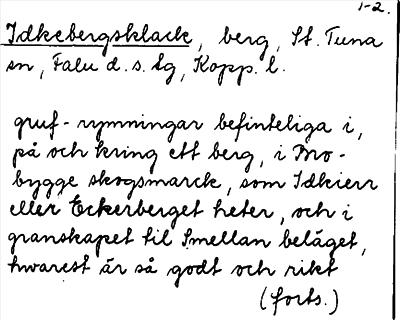 1-2.
Idkebergsklack, berg, St. Tuna
sn, Falu d. s. lg, Kopp. l.
gruf-rymningar befinteliga i,
på och kring ett berg, i Mo-
bygge skogsmarck, som Idkierr
eller Eckerberget heter, och i
granskapet til Smellan beläget,
hwarest är så godt och rikt
(forts.)